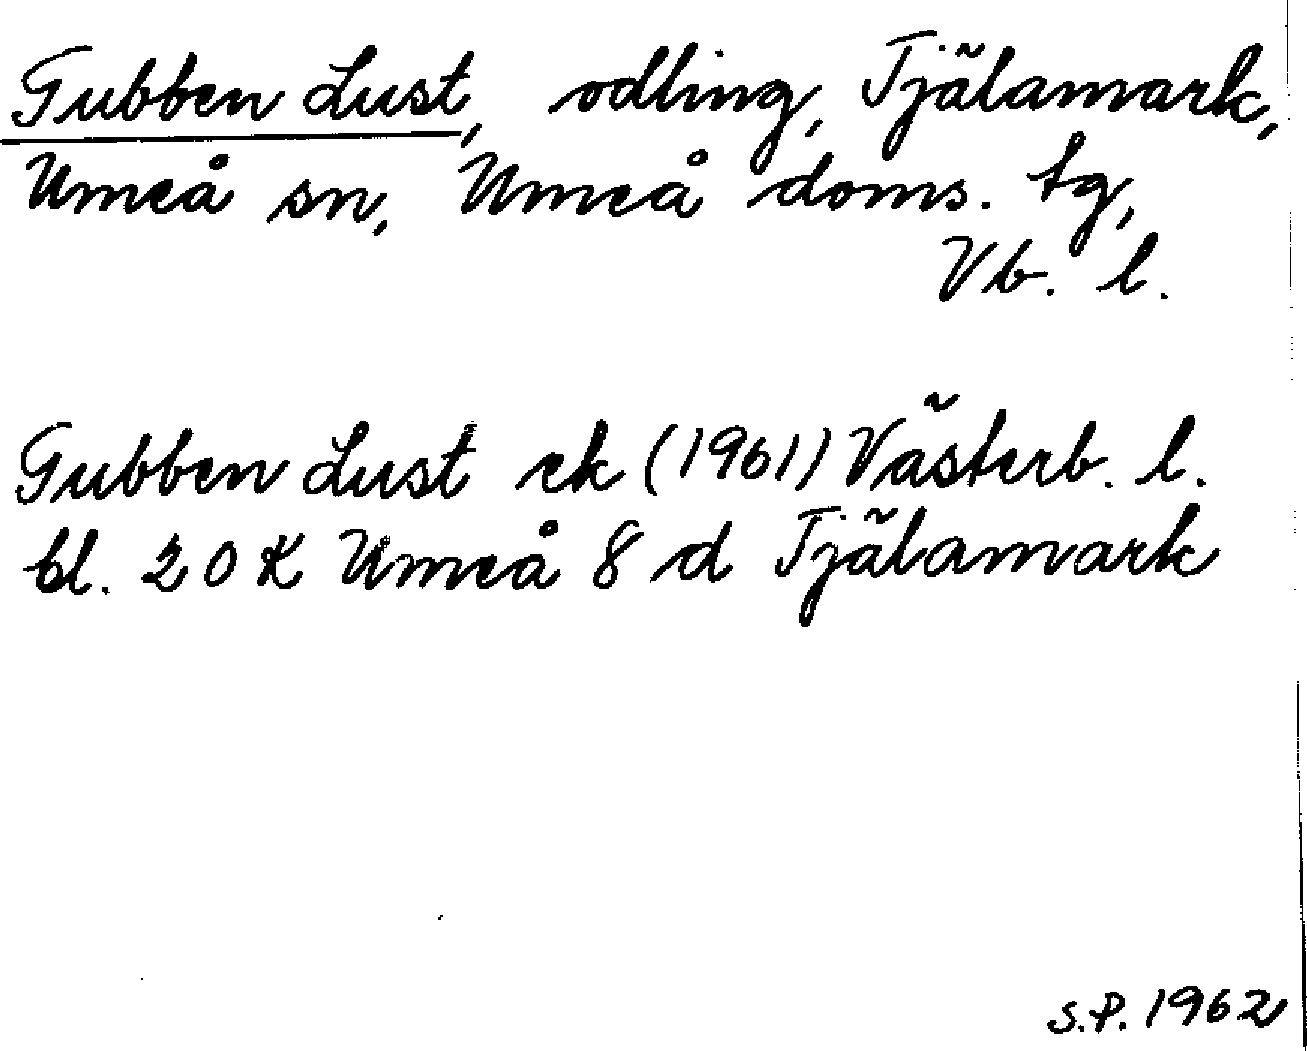 Gubben Lust, odling, Tjälamark,
Umeå sn, Umeå doms. tg,
Vb. l.
Gubben Lust ek (1961) Västerb. l.
bl. 20 K Umeå 8 d Tjälamark
S.P. 1962